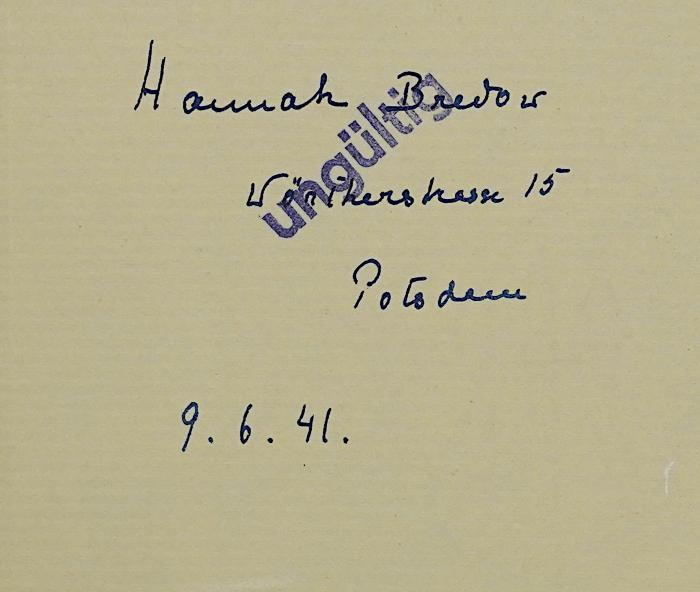 Hannah Bredow
ungültig
Wörtherstrasse 15
Potsdam
9.6.41.